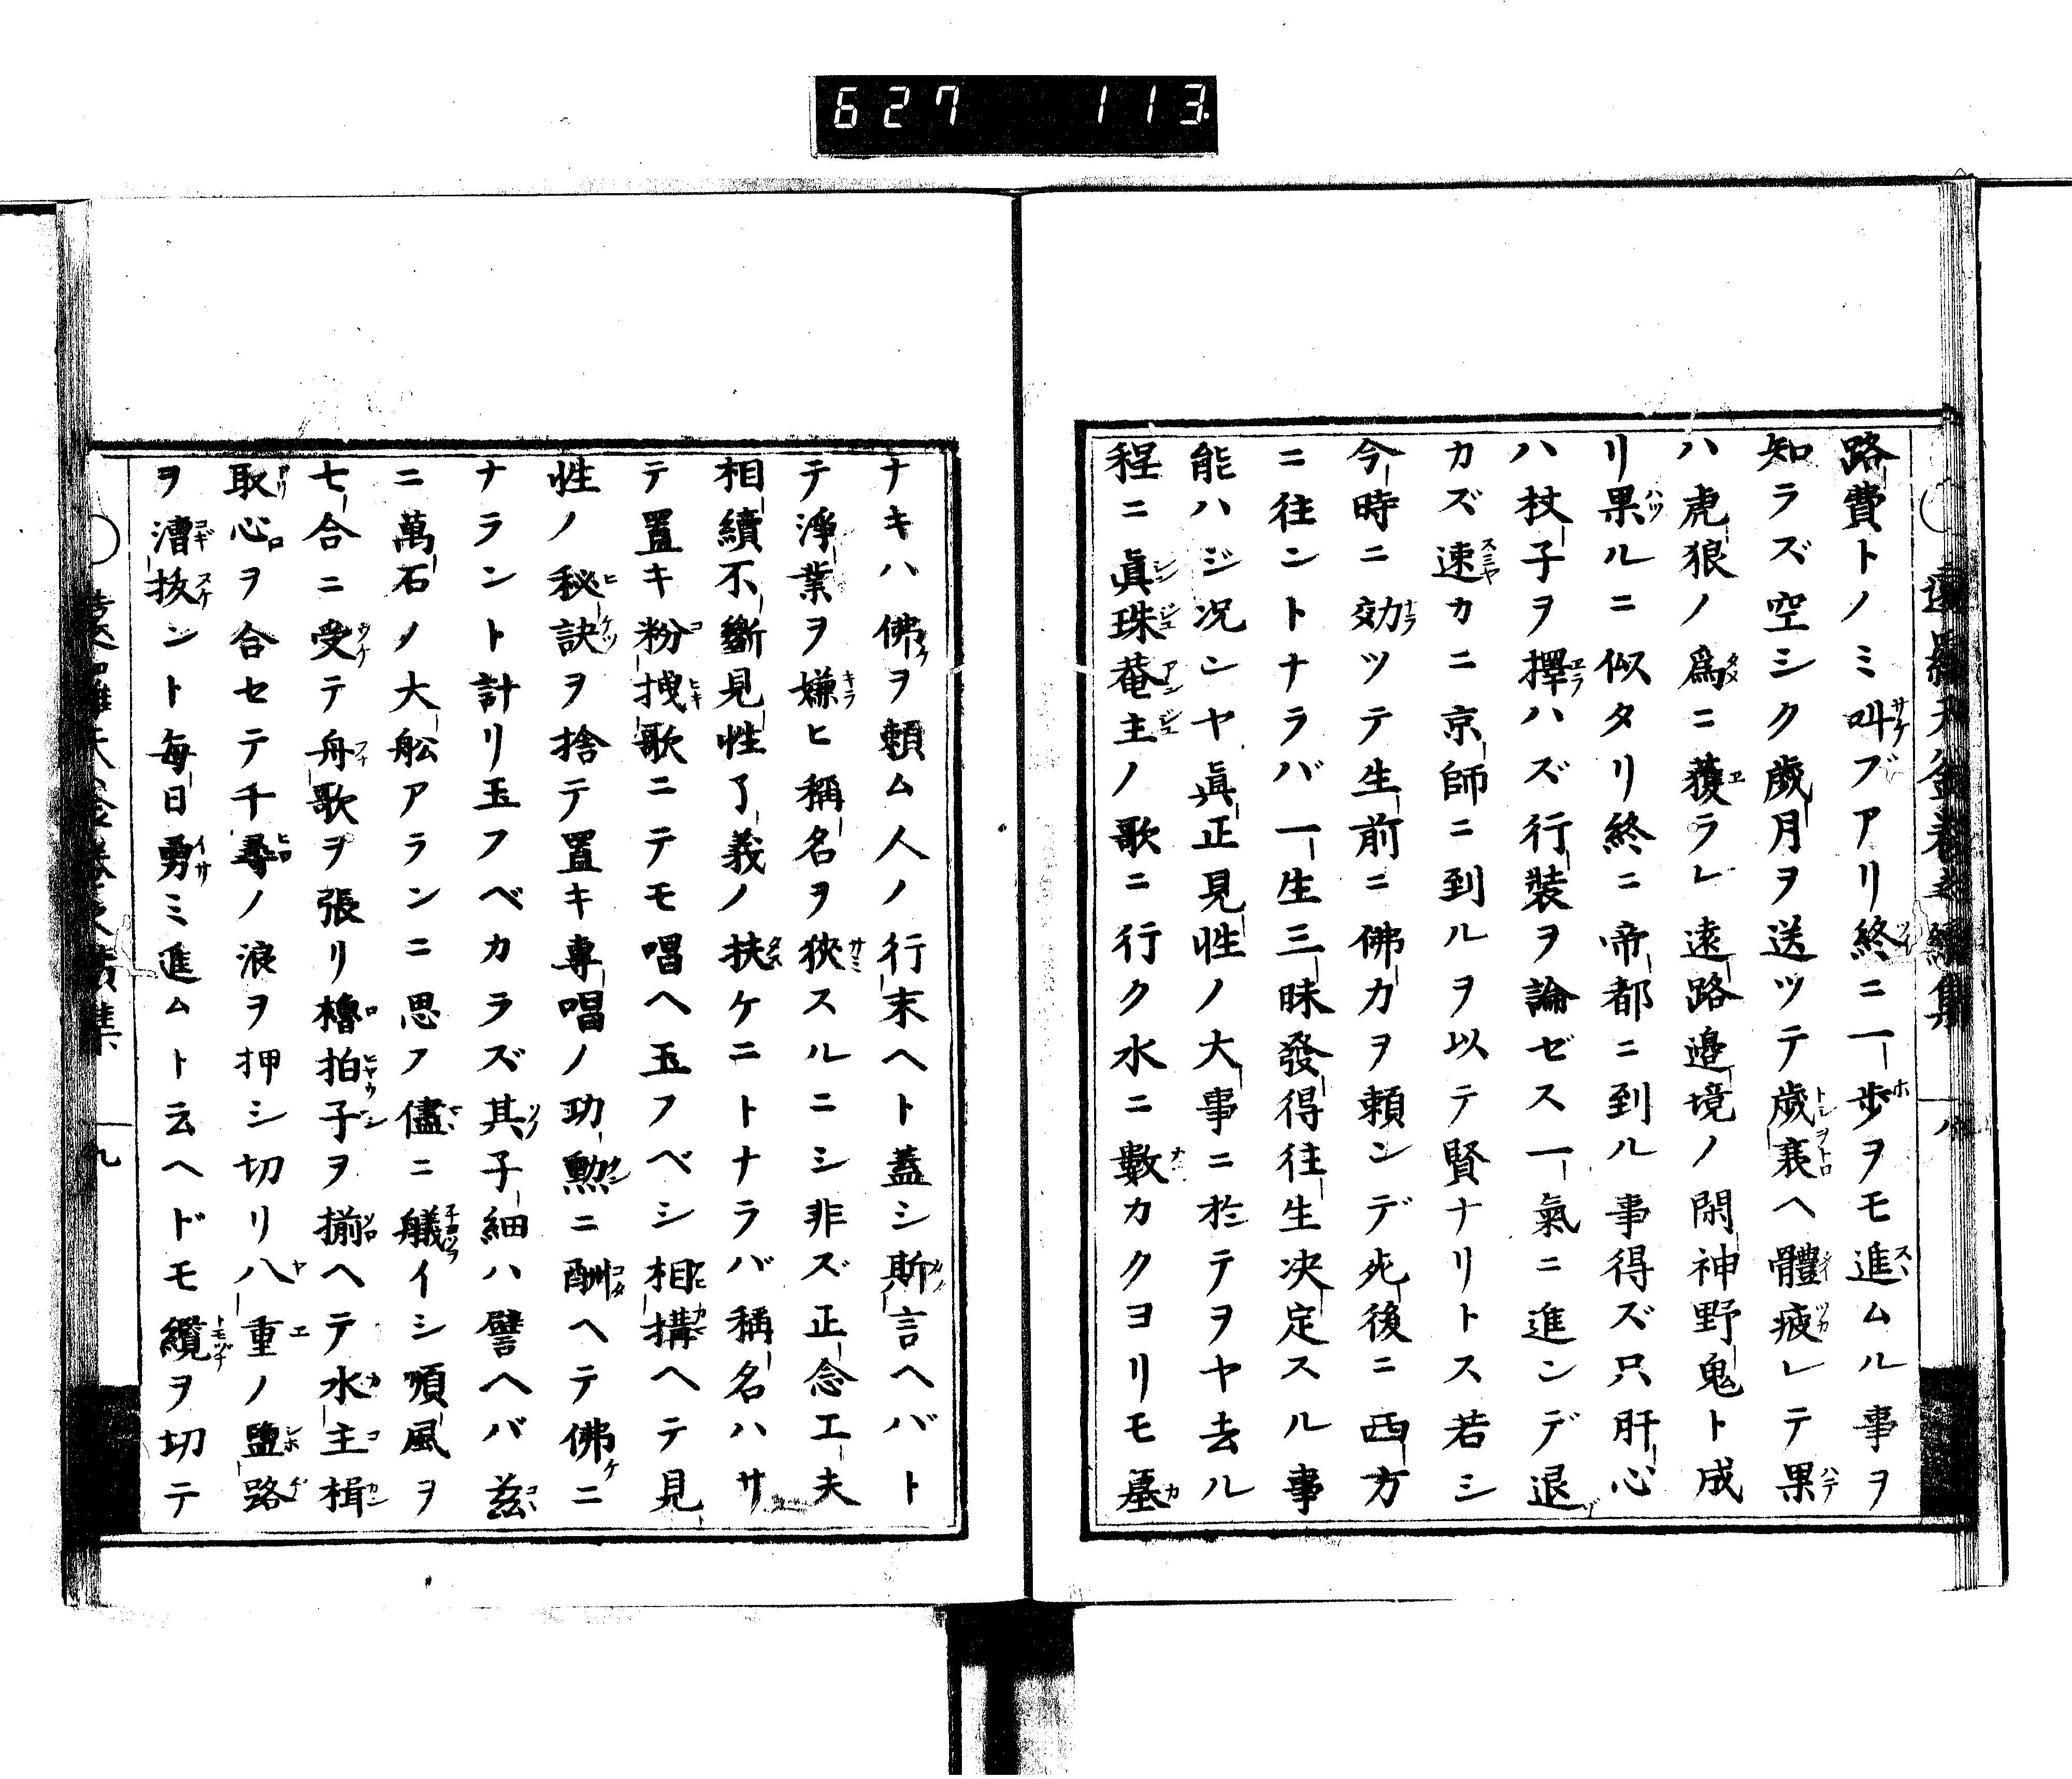 627 113
路費トノミ叫ブアリ終ニ一歩ヲモ進ムル事ヲ
知ラズ空シク歳月ヲ送ツテ歳衰ヘ體疲レテ果
ハ虎狼ノ爲ニ獲ラレ遠路邉境ノ閑神野鬼ト成
リ果ルニ似タリ終ニ帝都ニ到ル事得ズ只肝心
ハ杖子ヲ擇ハズ行裝ヲ論ゼス一氣ニ進ンデ退
カズ速カニ京師ニ到ルヲ以テ賢ナリトス若シ
今時ニ効ツテ生前ニ佛力ヲ頼シデ死後ニ西方
ニ往ントナラバ一生三昧發得往生决定スル事
能ハジ况ンヤ眞正見性ノ大事ニ於テヲヤ去ル
程ニ眞珠菴主ノ歌ニ行ク水ニ數カクヨリモ墓
ナキハ佛ヲ頼ム人ノ行末ヘト蓋シ斯言ヘバト
テ淨業ヲ嫌ヒ稱名ヲ狹スルニシ非ズ正念工夫
相續不斷見性了義ノ扶ケニトナラバ稱名ハサ
テ置キ粉挽歌ニテモ唱ヘ玉フベシ相搆ヘテ見
性ノ秘訣ヲ捨テ置キ專唱ノ功勲ニ酬ヘテ佛ニ
ナラント計リ玉フベカラズ其子細ハ譬ヘバ茲
ニ萬石ノ大舩アランニ思フ儘ニ艤イシ順風ヲ
七合ニ受テ舟歌ヲ張リ櫓拍子ヲ揃ヘテ水主楫
取心ヲ合セテ千尋ノ浪ヲ押シ切リ八重ノ鹽路
ヲ漕抜ント毎日勇ミ進ムト云ヘドモ纜ヲ切テ
九